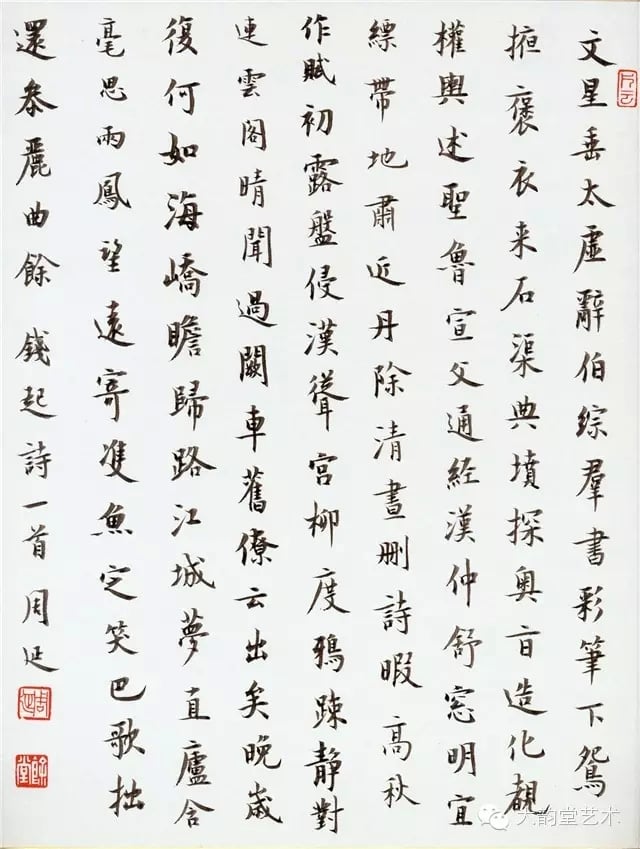 文星垂太虛辭伯综羣書彩筆下鴛
掖褒衣来石渠典墳探奥旨造化覩
權輿述聖魯宣父通経漢仲舒窓明宜
縹帶地肅近丹除清晝删詩暇高秋
作賦初露盤侵漢聳宮柳度鴉踈静對
連雲閣晴聞過闕車舊僚云出矣晚歲
復何如海嶠瞻歸路江城夢直廬含
毫思兩鳳望遠寄雙魚定笑巴歌拙
還叅麗曲餘 錢起詩一首周延
片云
周延
大韵堂艺术